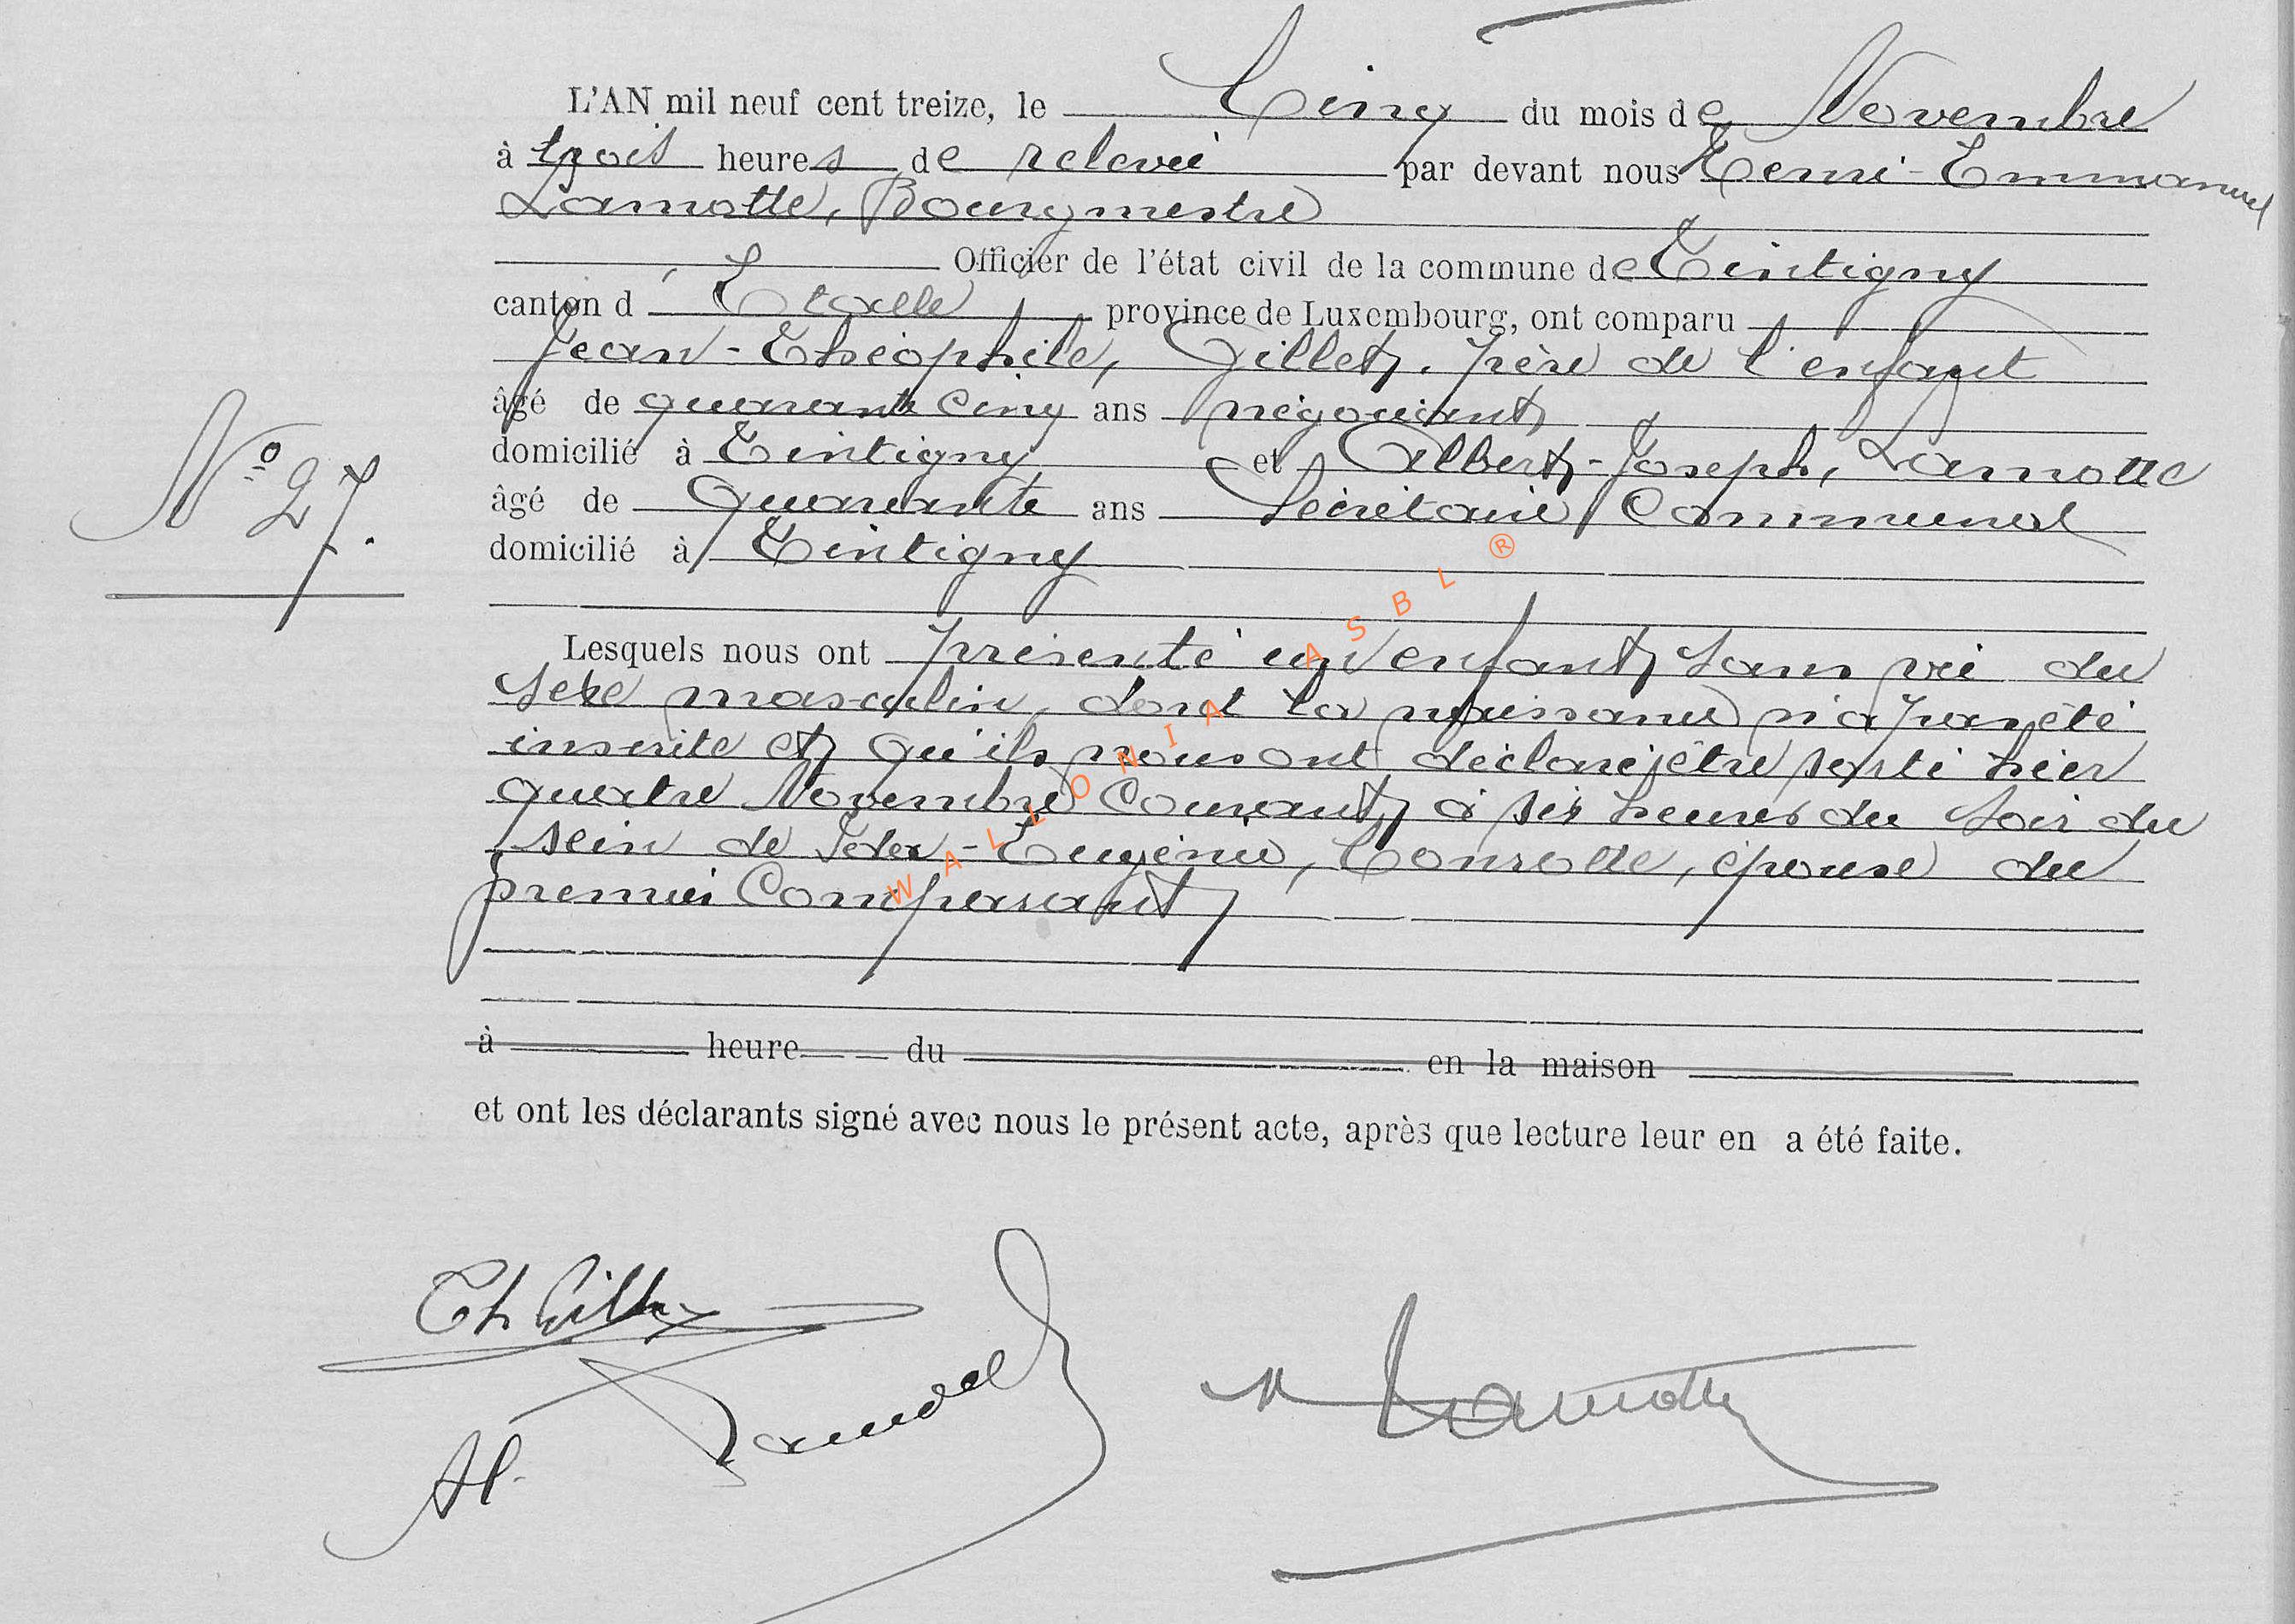 L'AN mil neuf cent treize, le Cinq du mois de Novembre
à trois heures de relevée par devant nous Henri-Emmanuel
Lamotte, Bourgmestre
Officier de l'état civil de la commune de Tintigny
canton d'Etalle province de Luxembourg, ont comparu
Jean-Théophile, Gillet, père de l'enfant
âgé de quarante cinq ans négociant
domicilié à Tintigny et Albert-Joseph, Lamotte
N° 27.
âgé de Quarante ans Secrétaire Communal
domicilié à Tintigny
Lesquels nous ont présenté un enfant sans vie du
sexe masculin, dont la naissance n'a pas été
inscrite et qu'ils nous ont déclaré être sorti hier
quatre Novembre Courant à six heures du soir du
sein de Ida-Eugénie, Conrotte, épouse du
premier Comparant
à heure du en la maison
et ont les déclarants signé avec nous le présent acte, après que lecture leur en a été faite.
Th Gillet
Al. Lamotte
H Lamotte
WALLONIA ASBL ®